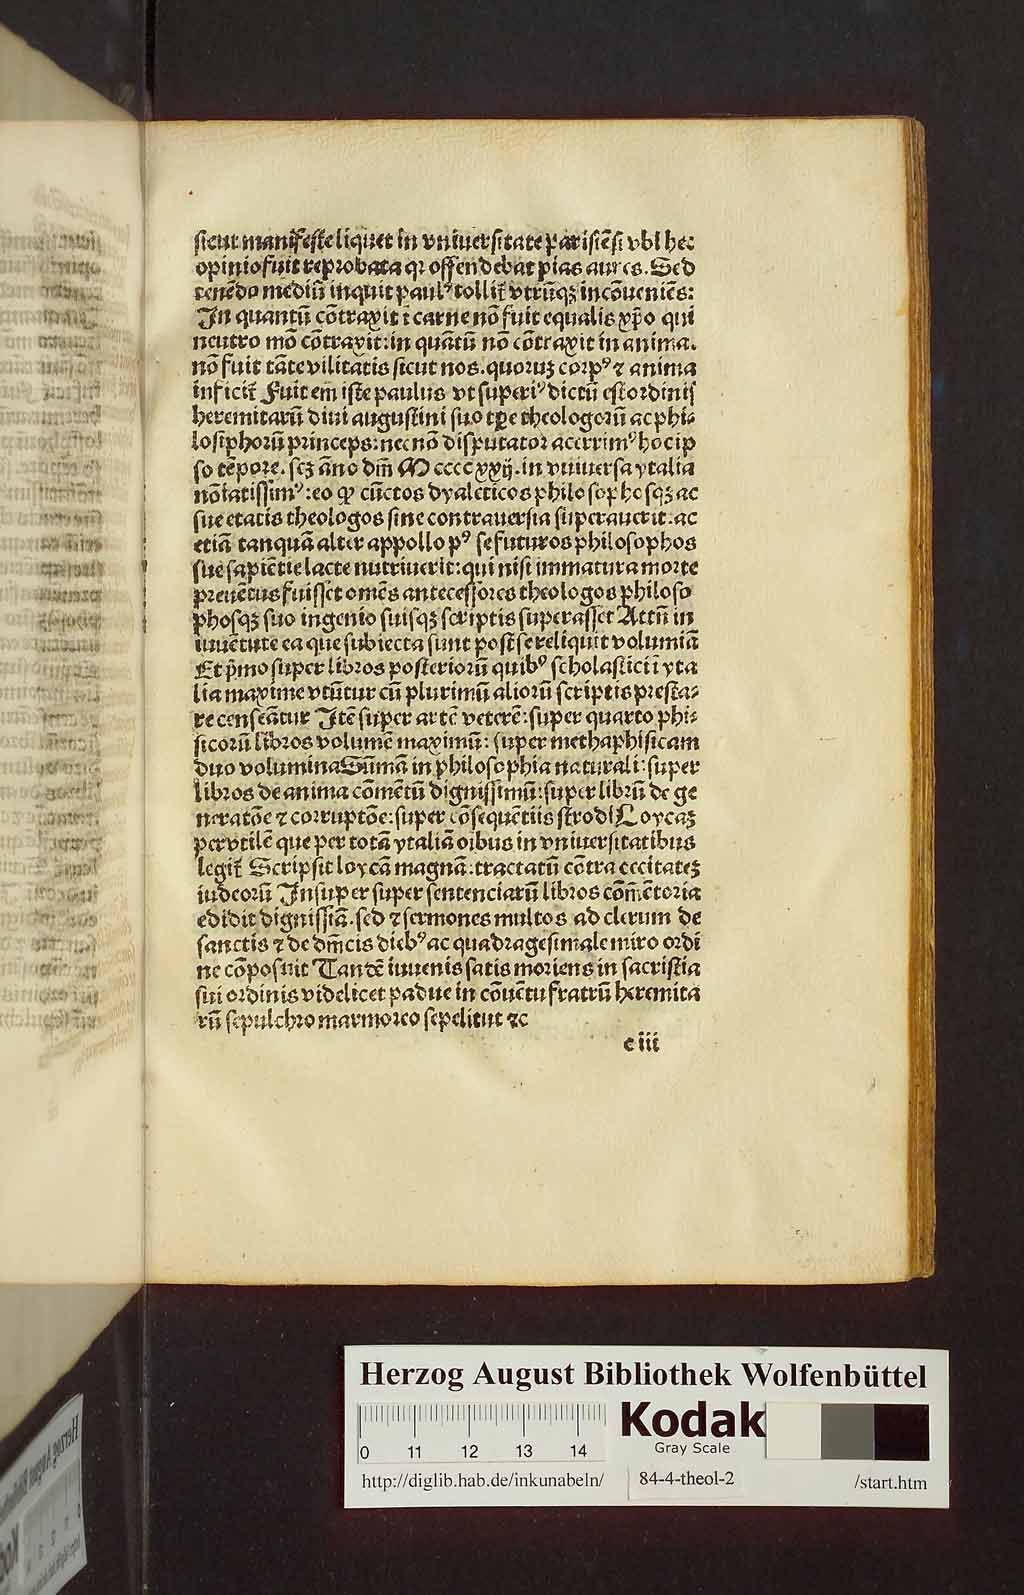 sicut manifeste liquet in vniuersitate parisiēsi vbi hec
opinio fuit reprobata qꝛ offendebat pias aures. Sed
tenēdo mediū inquit paulꝰ tollit̄ vtrūqꝫ incōueniēs:
In quantū cōtraxit ī carne nō fuit equalis xp̄o qui
neutro mō cōtraxit: in quātū nō cōtraxit in anima.
nō fuit tāte vilitatis sicut nos. quorūꝫ corpꝰ ⁊ anima
inficit̄ Fuit em̄ iste paulus vt superiꝰ dictū est ordinis
heremitarū diui augustini suo tꝑe theologorū ac phi⸗
losiphorū princeps: necnō disputator acerrimꝰ hoc ip
so tēpore. scꝫ āno dm̄ M cccc xxij. in vniuersa ytalia
nōiatissimꝰ: eo ꝙ cūctos dyalecticos philosophosqꝫ ac
sue etatis theologos sine contrauersia superauerit: ac
etiā tanquā alter appollo pꝰ se futuros philosophos
sue sapiētie lacte nutriuerit: qui nisi immatura morte
preuētus fuisset omēs antecessores theologos philoso
phosqꝫ suo ingenio suisqꝫ scriptis superasset Attn̄ in
iuuētute ea que subiecta sunt post se reliquit volumiā
Et p̄mo super libros posteriorū quibꝰ scholastici ī yta
lia maxime vtūtur cū plurimū aliorū scriptis presta⸗
re censeātur Itē super artē veterē: super quarto phi⸗
sicorū libros volumē maximū: super methaphisicam
duo volumina Sūmā in philosophia naturali: super
libros de anima cōmētū dignissimū: super librū de ge
neratōe ⁊ corruptōe: super cōsequētiis strodi Loycaꝫ
pervtilē que per totā ytaliā oībus in vniuersitatibus
legit̄ Scripsit loycā magnā: tractatū cōtra cecitateꝫ
iudeorū Insuper super sentenciarū libros cōm̄ētoria
edidit dignissīa. sed ⁊ sermones multos ad clerum de
sanctis ⁊ de dm̄cis diebꝰ ac quadragesimale miro ordi
ne cōposuit Tandē iuuenis satis moriens in sacristia
sui ordinis videlicet padue in cōuētu fratrū heremita
rū sepulchro marmoreo sepelitut ⁊c
e iii
Herzog August Bibliothek Wolfenbüttel
Kodak
Gray Scale
0 11 12 13 14
http://diglib.hab.de/inkunabeln/ 84-4-theol-2 /start.htm